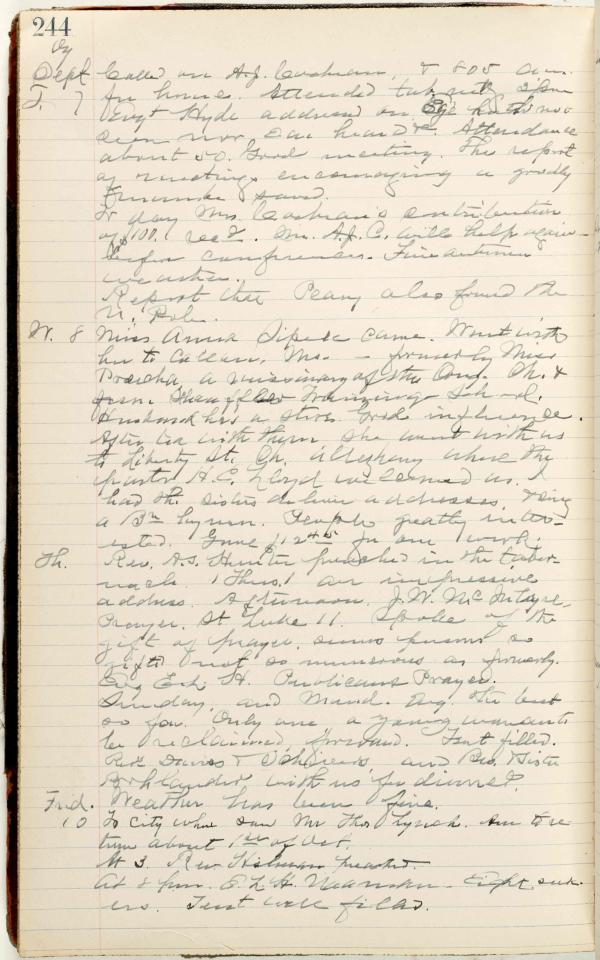 244
09
Sept Called on A.J. Cochran, & 805 am.
T. 7 for home. Attended tab mtg 2 pm
Evgt Hyde address on Eye hath not
seen nor Ear heard &c. Attendance
about 50. Good meeting. The report
of meetings encouraging a goodly
number saved.
To day Mrs. Cochran's contribution
of $100. recd. Mr. A.J.C. will help again
before conference. Fine autumn
weather.
Report that Peary also found the
N. Pole.
W. 8 Miss Anna came. Went with
her to Mrs. - formerly Miss
a missionary of the Ch. &
from Training School.
Husband has a store. Good influence.
After tea with them she went with us
to Liberty St. Ch. Allegheny where the
pastor H.C. Lloyd welcomed us. I
had the sisters deliver addresses, & sing
a hymn. People greatly inter-
ested. Gave $12.45 for our work.
Th. Rev. A.S. Hunter preached in the taber-
nacle Thess. an impressive
address. Afternoon. J.W. McIntyre,
Prayer, St Luke 11. Spoke of the
gift of prayer, seems persons so
gifted not so numerous as formerly.
Evg E.L.H. Publicans Prayer.
Sunday, and Mond. Evg. the best
so far. Only one a young woman to
be reclaimed, forward. Tent filled.
Rev Davis & and Bro. & Sister
Bohlander with us for dinner.
Frid. Weather has been fine.
10 To city where saw Mr Thos Lynch. Am to re-
turn about 1st of Oct.
At 3. Rev. preached.
At 8 pm. E.L.H. Naaman - Eight seek-
ers. Tent well filled.